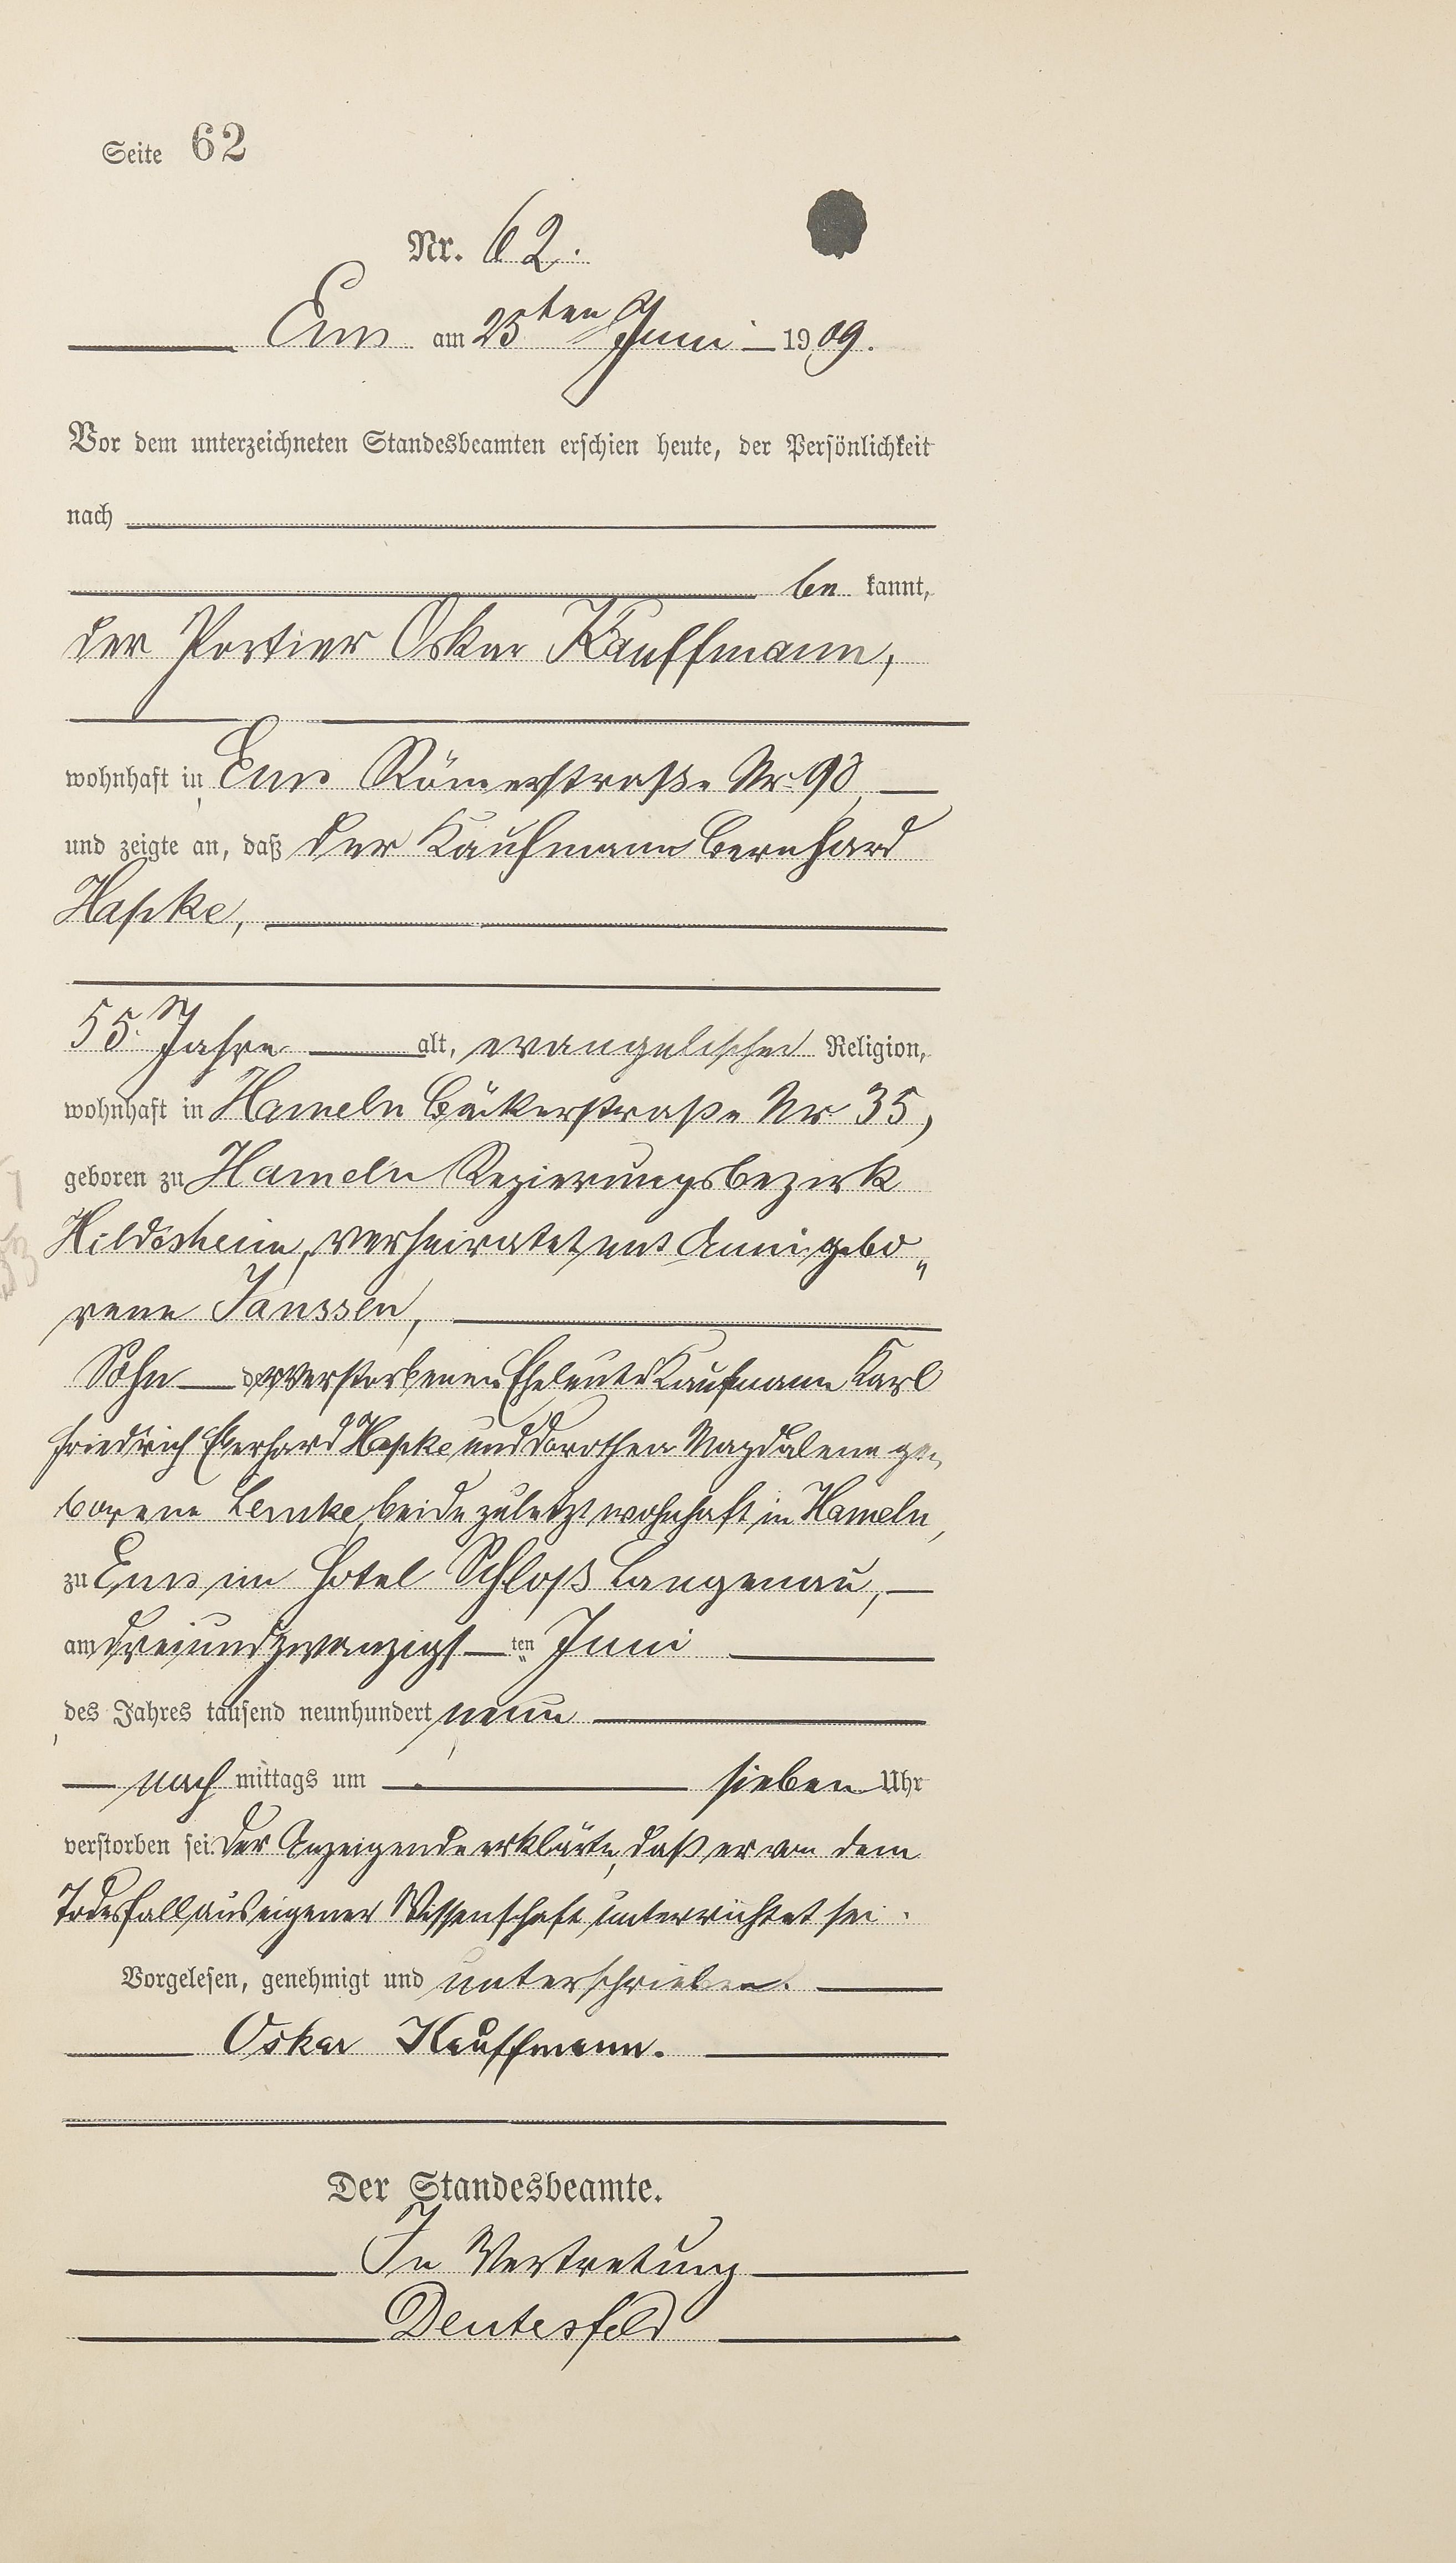 Seite 62
Nr. 62.
Ems am 25ten Juni 1909.
Vor dem unterzeichneten Standesbeamten erschien heute, der Persönlichkeit
nach
be kannt,
der Portier Oskar Kauffmann,
wohnhaft in Ems Römerstraße Nr. 98
und zeigte an, daß der Kaufmann Bernhard
Hapke,
55 Jahre alt, evangelischer Religion,
wohnhaft in Hameln Bäckerstraße Nr 35,
geboren zu Hameln Regierungsbezirk
Hildesheim, verheiratet mit Anni gebo„
rene Janssen,
Sohn der verstorbenen Eheleute Kaufmann Karl
Friedrich Eberhard Hapke und Dorothea Magdalena ge„
borene Lemke, beide zuletzt wohnhaft in Hameln,
zu Ems im Hotel Schloß Langenau,
am dreiundzwanzigs ten Juni
des Jahres tausend neunhundert neun
nach mittags um sieben Uhr
verstorben sei. Der Anzeigende erklärte, daß er von dem
Todesfall aus eigener Wissenschaft unterrichtet sei.
Vorgelesen, genehmigt und unterschrieben.
Oskar Kauffmann.
Der Standesbeamte.
In Vertretung
Deutesfeld